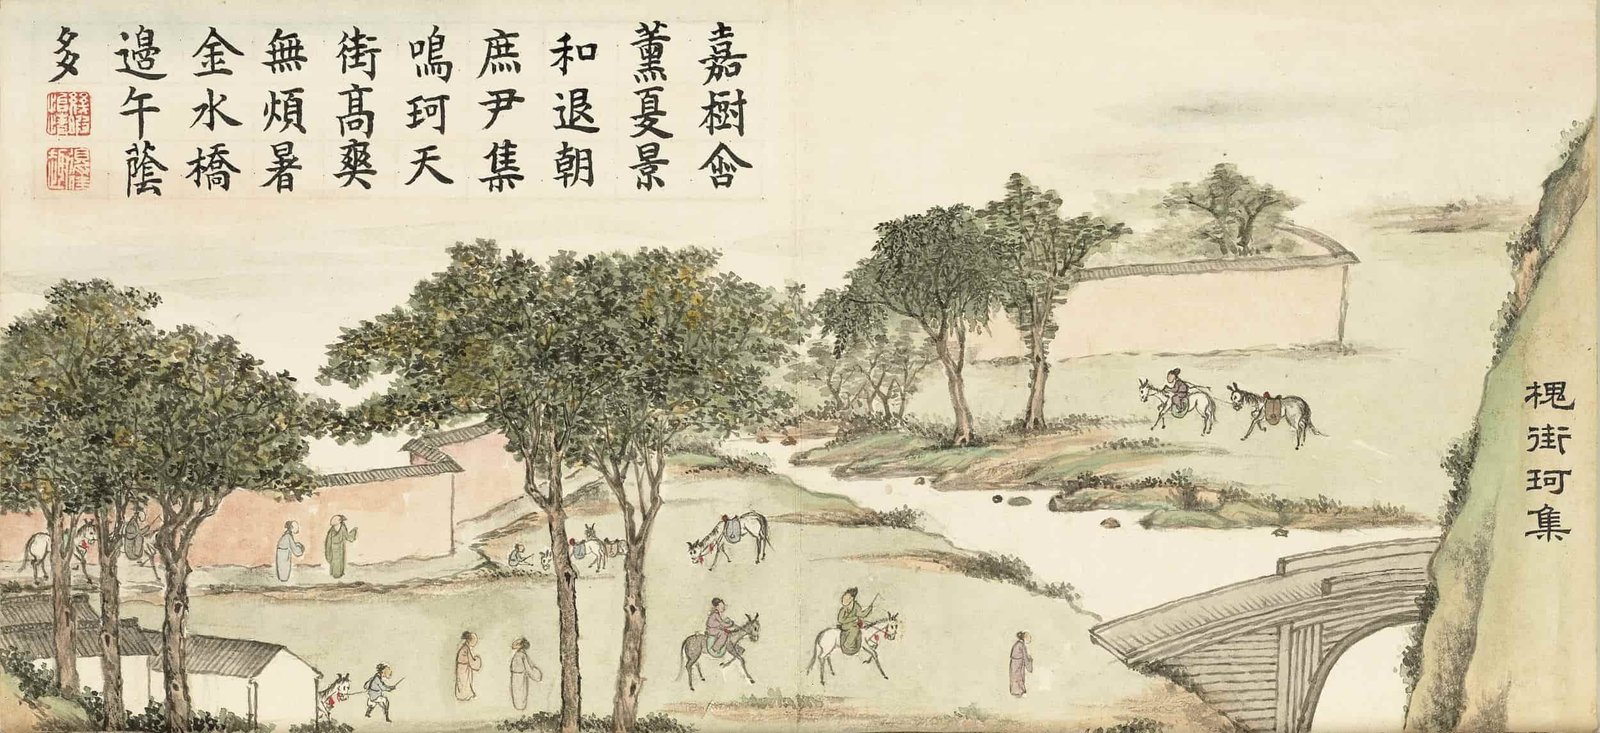 槐街珂集
嘉樹含
薰夏景
和退朝
庶尹集
鳴珂天
街高爽
無煩暑
金水橋
邊午蔭
多
幾暇怡情
得佳趣